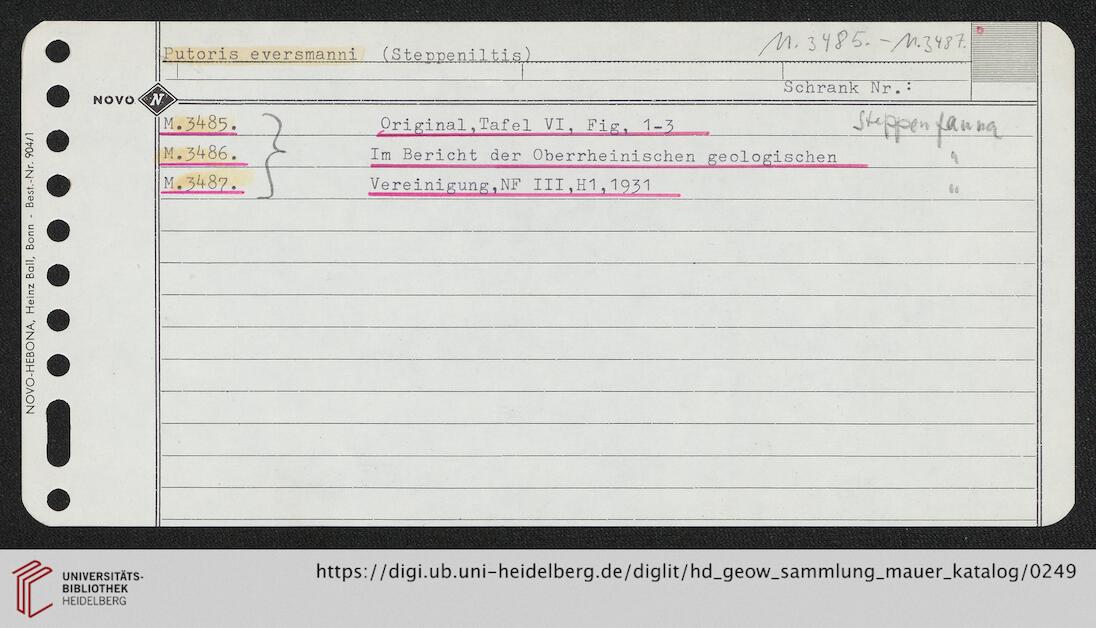 Putoris eversmanni (Steppeniltis) M.3485.-M.3487.
Schrank Nr.:
NOVO N
M.3485. Original,Tafel VI, Fig. 1-3 Steppenfauna
M.3486. Im Bericht der Oberrheinischen geologischen "
M.3487. Vereinigung,NF III,H1,1931 "
NOVO-HEBONA, Heinz Ball, Bonn - Best.-Nr. 904/1
UNIVERSITÄTS-
BIBLIOTHEK
HEIDELBERG
https://digi.ub.uni-heidelberg.de/diglit/hd_geow_sammlung_mauer_katalog/0249